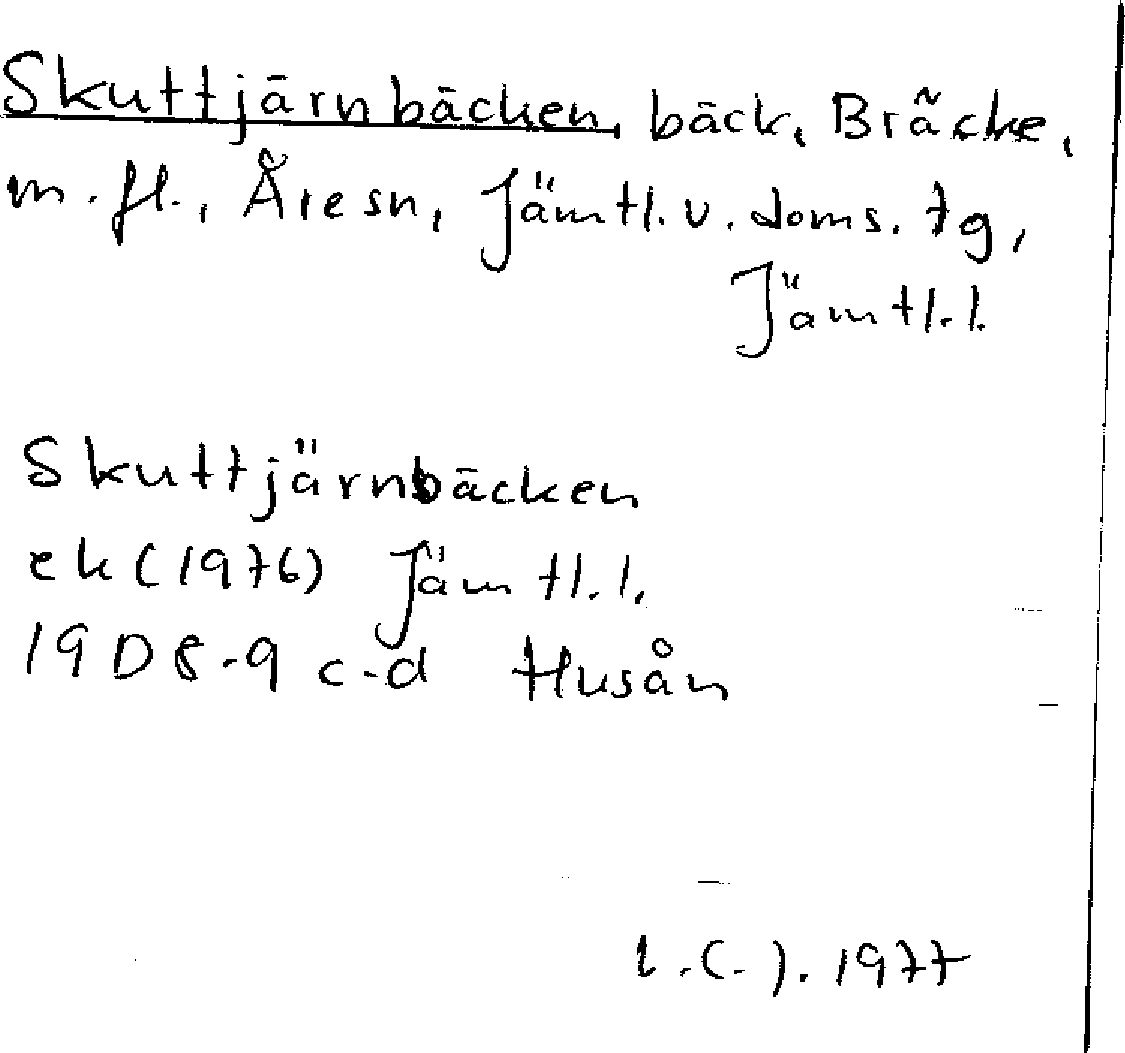 Skuttjärnbäcken, bäck, Bräcke,
m. fl., Åresn, Jämtl. v. doms. tg,
Jämtl. l.
Skuttjärnbäcken
ek (1976) Jämtl. l.
19 D 8-9 c-d Husån
1977